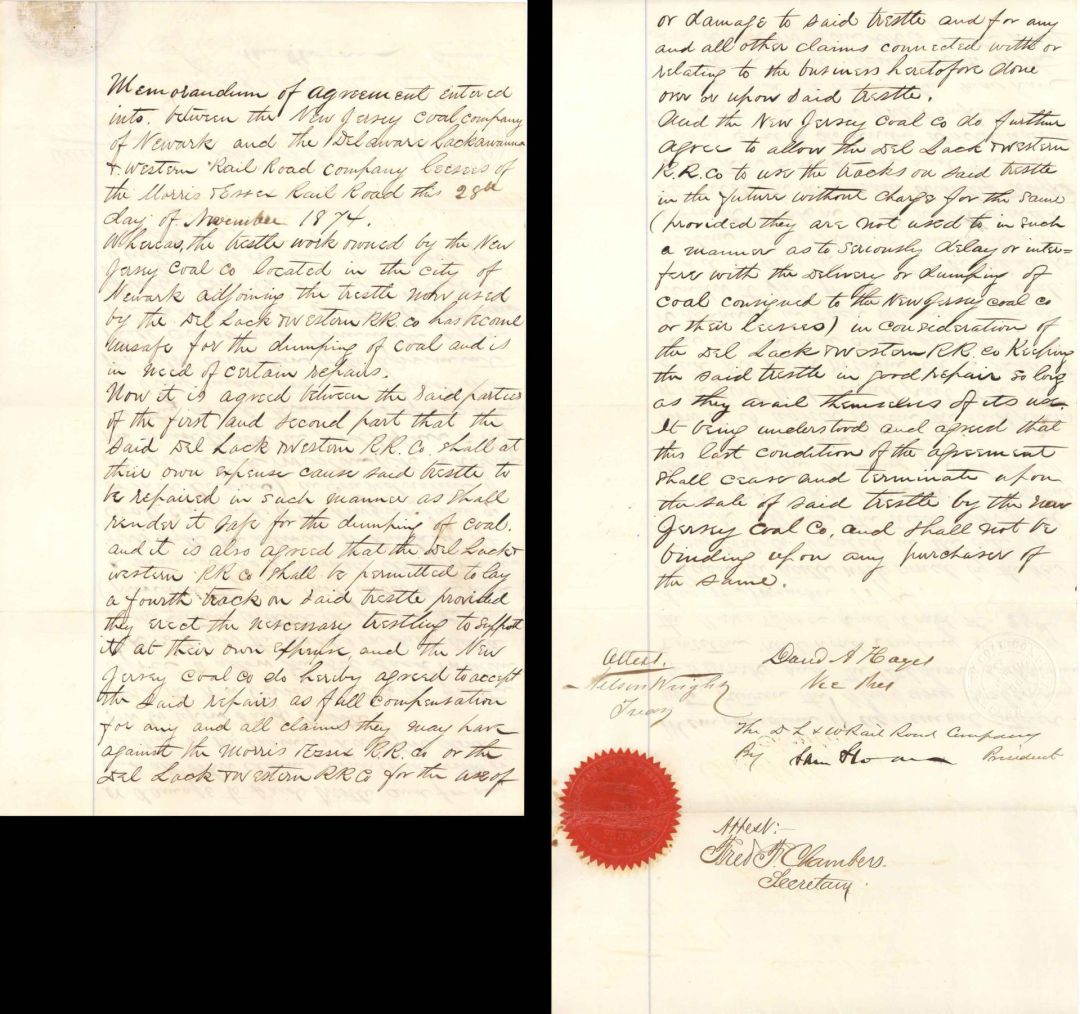 Memorandum of agreement entered
into. between the New Jersey Coal company
of Newark and the Delaware Lackawanna
& Western Rail Road company lessees of
the Morris & Essex Rail Road this 28th
day of November 1874.
Whereas, the trestle work owned by the New
Jersey Coal Co located in the city of
Newark adjoining the trestle now used
by the Del Lack & Western R.R. co has become
unsafe for the dumping of coal and is
in need of certain repairs.
Now it is agreed between the said parties
of the first and second part that the
said Del Lack & Western R.R. Co. shall at
their own expense cause said trestle to
be repaired in such manner as shall
render it safe for the dumping of coal.
and it is also agreed that the Del Lack &
western R.R. Co shall be permitted to lay
a fourth track on said trestle provided
they erect the nescessary trestling to support
it at their own expense and the New
Jersey Coal Co do hereby agreed to accept
the said repairs as full compensation
for any and all claims they may have
against the Morris & Essex R.R. co or the
Del Lack & Western R R Co for the use of
or damage to said trestle and for any
and all other claims connected with or
relating to the business heretofore done
over or upon said trestle.
And the New Jersey Coal Co do further
agree to allow the Del Lack & Western
R.R. Co to use the tracks on said trestle
in the future without charge for the same
(provided they are not used to in such
a manner as to seriously delay or inter=
fere with the delivery or dumping of
coal consigned to the New Jersey Coal Co
or their lessees) in consideration of
the Del Lack & Western R.R. co Keeping
the said trestle in good repair so long
as they avail themselves of its use.
It being understood and agreed that
this last condition of the agreement
shall cease and terminate upon
the sale of said trestle by the New
Jersey Coal Co, and shall not be
binding upon any purchaser of
the same.
Attest.
David A Hayes
Nelson Wright
Vice Pres
Treas
The D L & W Rail Road Company
By Sam Sloan President
Attest:-
Fred F. Chambers.
Secretary.